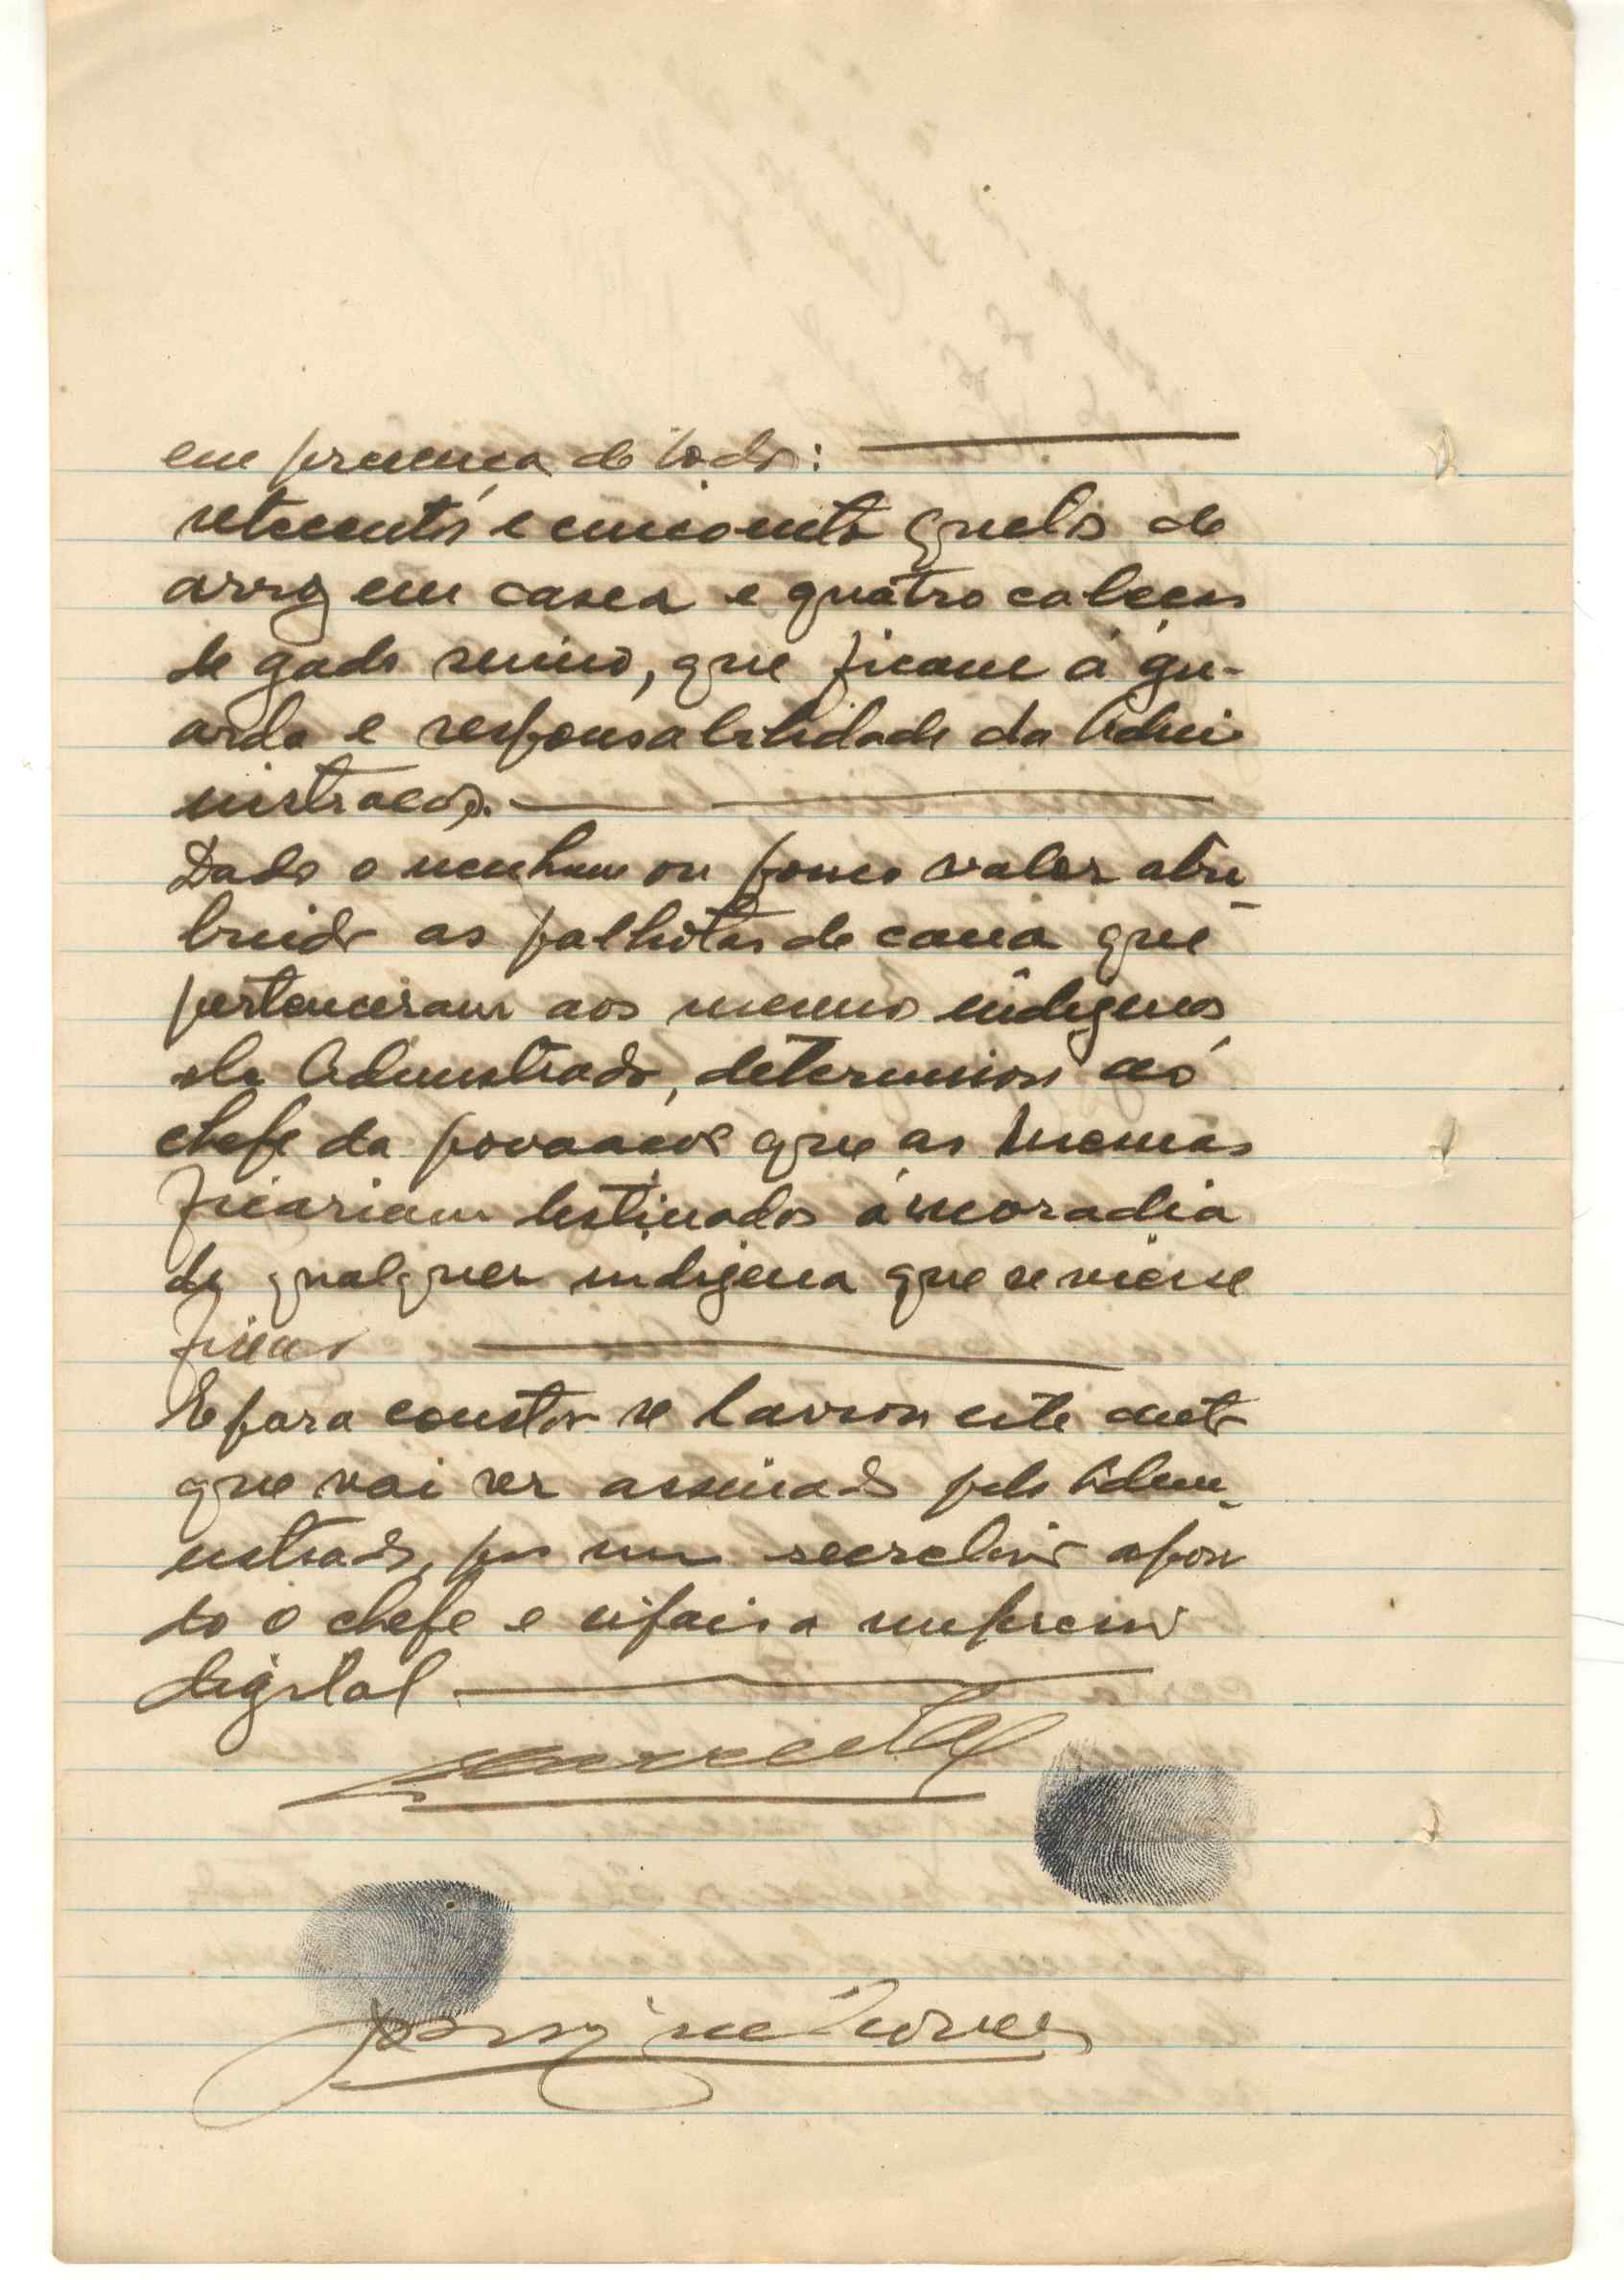 em presença de todos:
setecentos e cincoenta quilos de
arroz em casca e quatro cabeças
de gado suino, que ficam á gu-
arda e responsabilidade da Admi
nistração.
Dado o nenhum ou pouco valor atri-
buido as palhotas de cana que
pertenceram aos mesmos indigenas
ele Admnistrador, determinou ao
chefe da povoação que as mesmas
ficariam destinadas á moradia
de qualquer indigena que se viesse
ficar
E para constar se lavrou este auto
que vai ser assinado pelo Admi-
nistrador, por mim secretario apon
do o chefe e cipais a impressão
digital